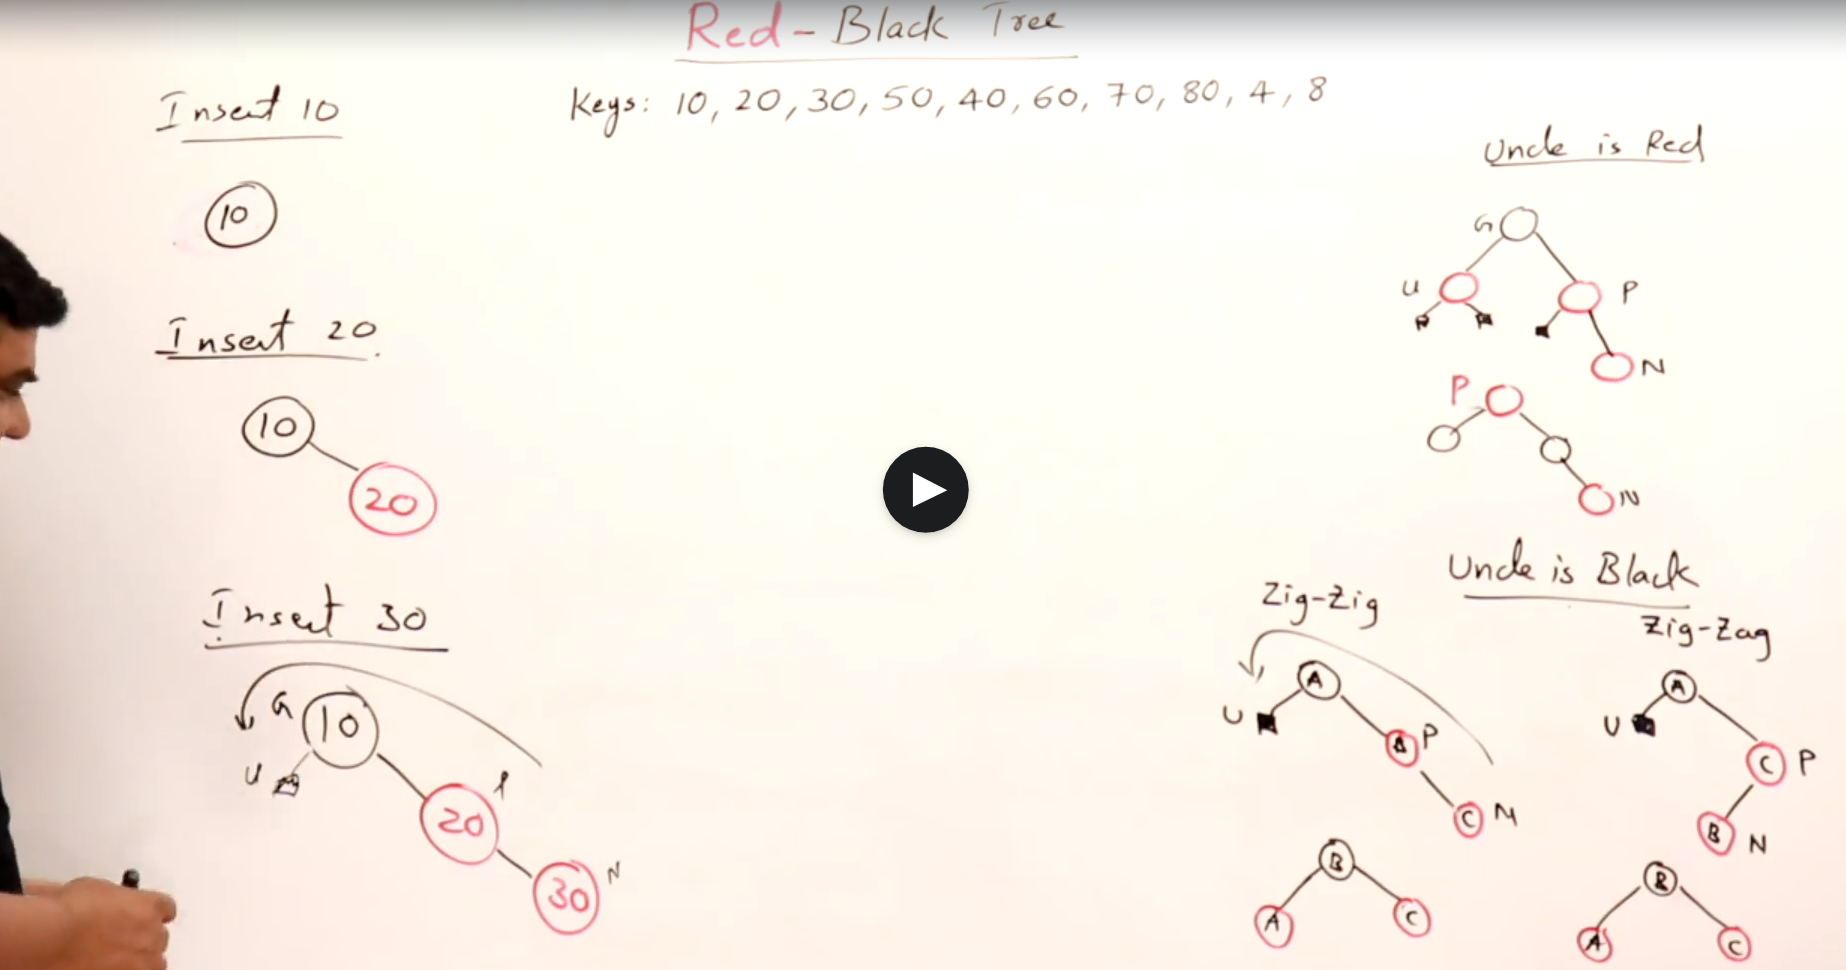 Red-Black Tree
Keys: 10, 20, 30, 50, 40, 60, 70, 80, 4, 8
Insert 10
10
Insert 20
10
20
Insert 30
G
10
U
20
30
N
Uncle is Red
G
U
P
N
P
N
Uncle is Black
Zig-Zig
A
U
P
C
N
B
A
C
Zig-Zag
A
U
C
P
B
N
B
A
C